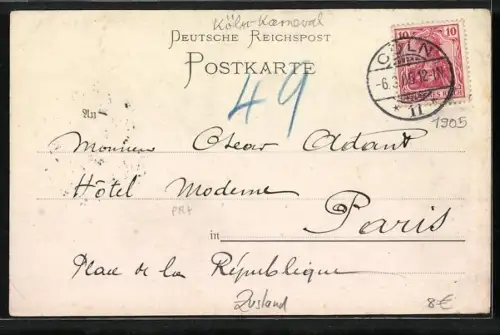 Köln Karneval
DEUTSCHE REICHSPOST
POSTKARTE
10 10
CÖLN
-6.3.05.12-1N.
* 11
49
1905
An
Monsieur Oscar Adant
Hôtel Moderne
PR4
Paris
in
Place de la République
Zustand
8€